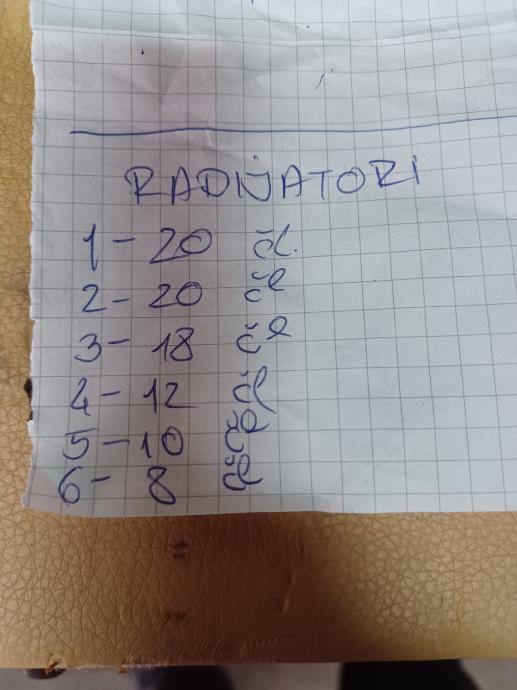 RADIJATORI
1 - 20 čl.
2 - 20 čl
3 - 18 čl
4 - 12 čl
5 - 10 čl
6 - 8 čl